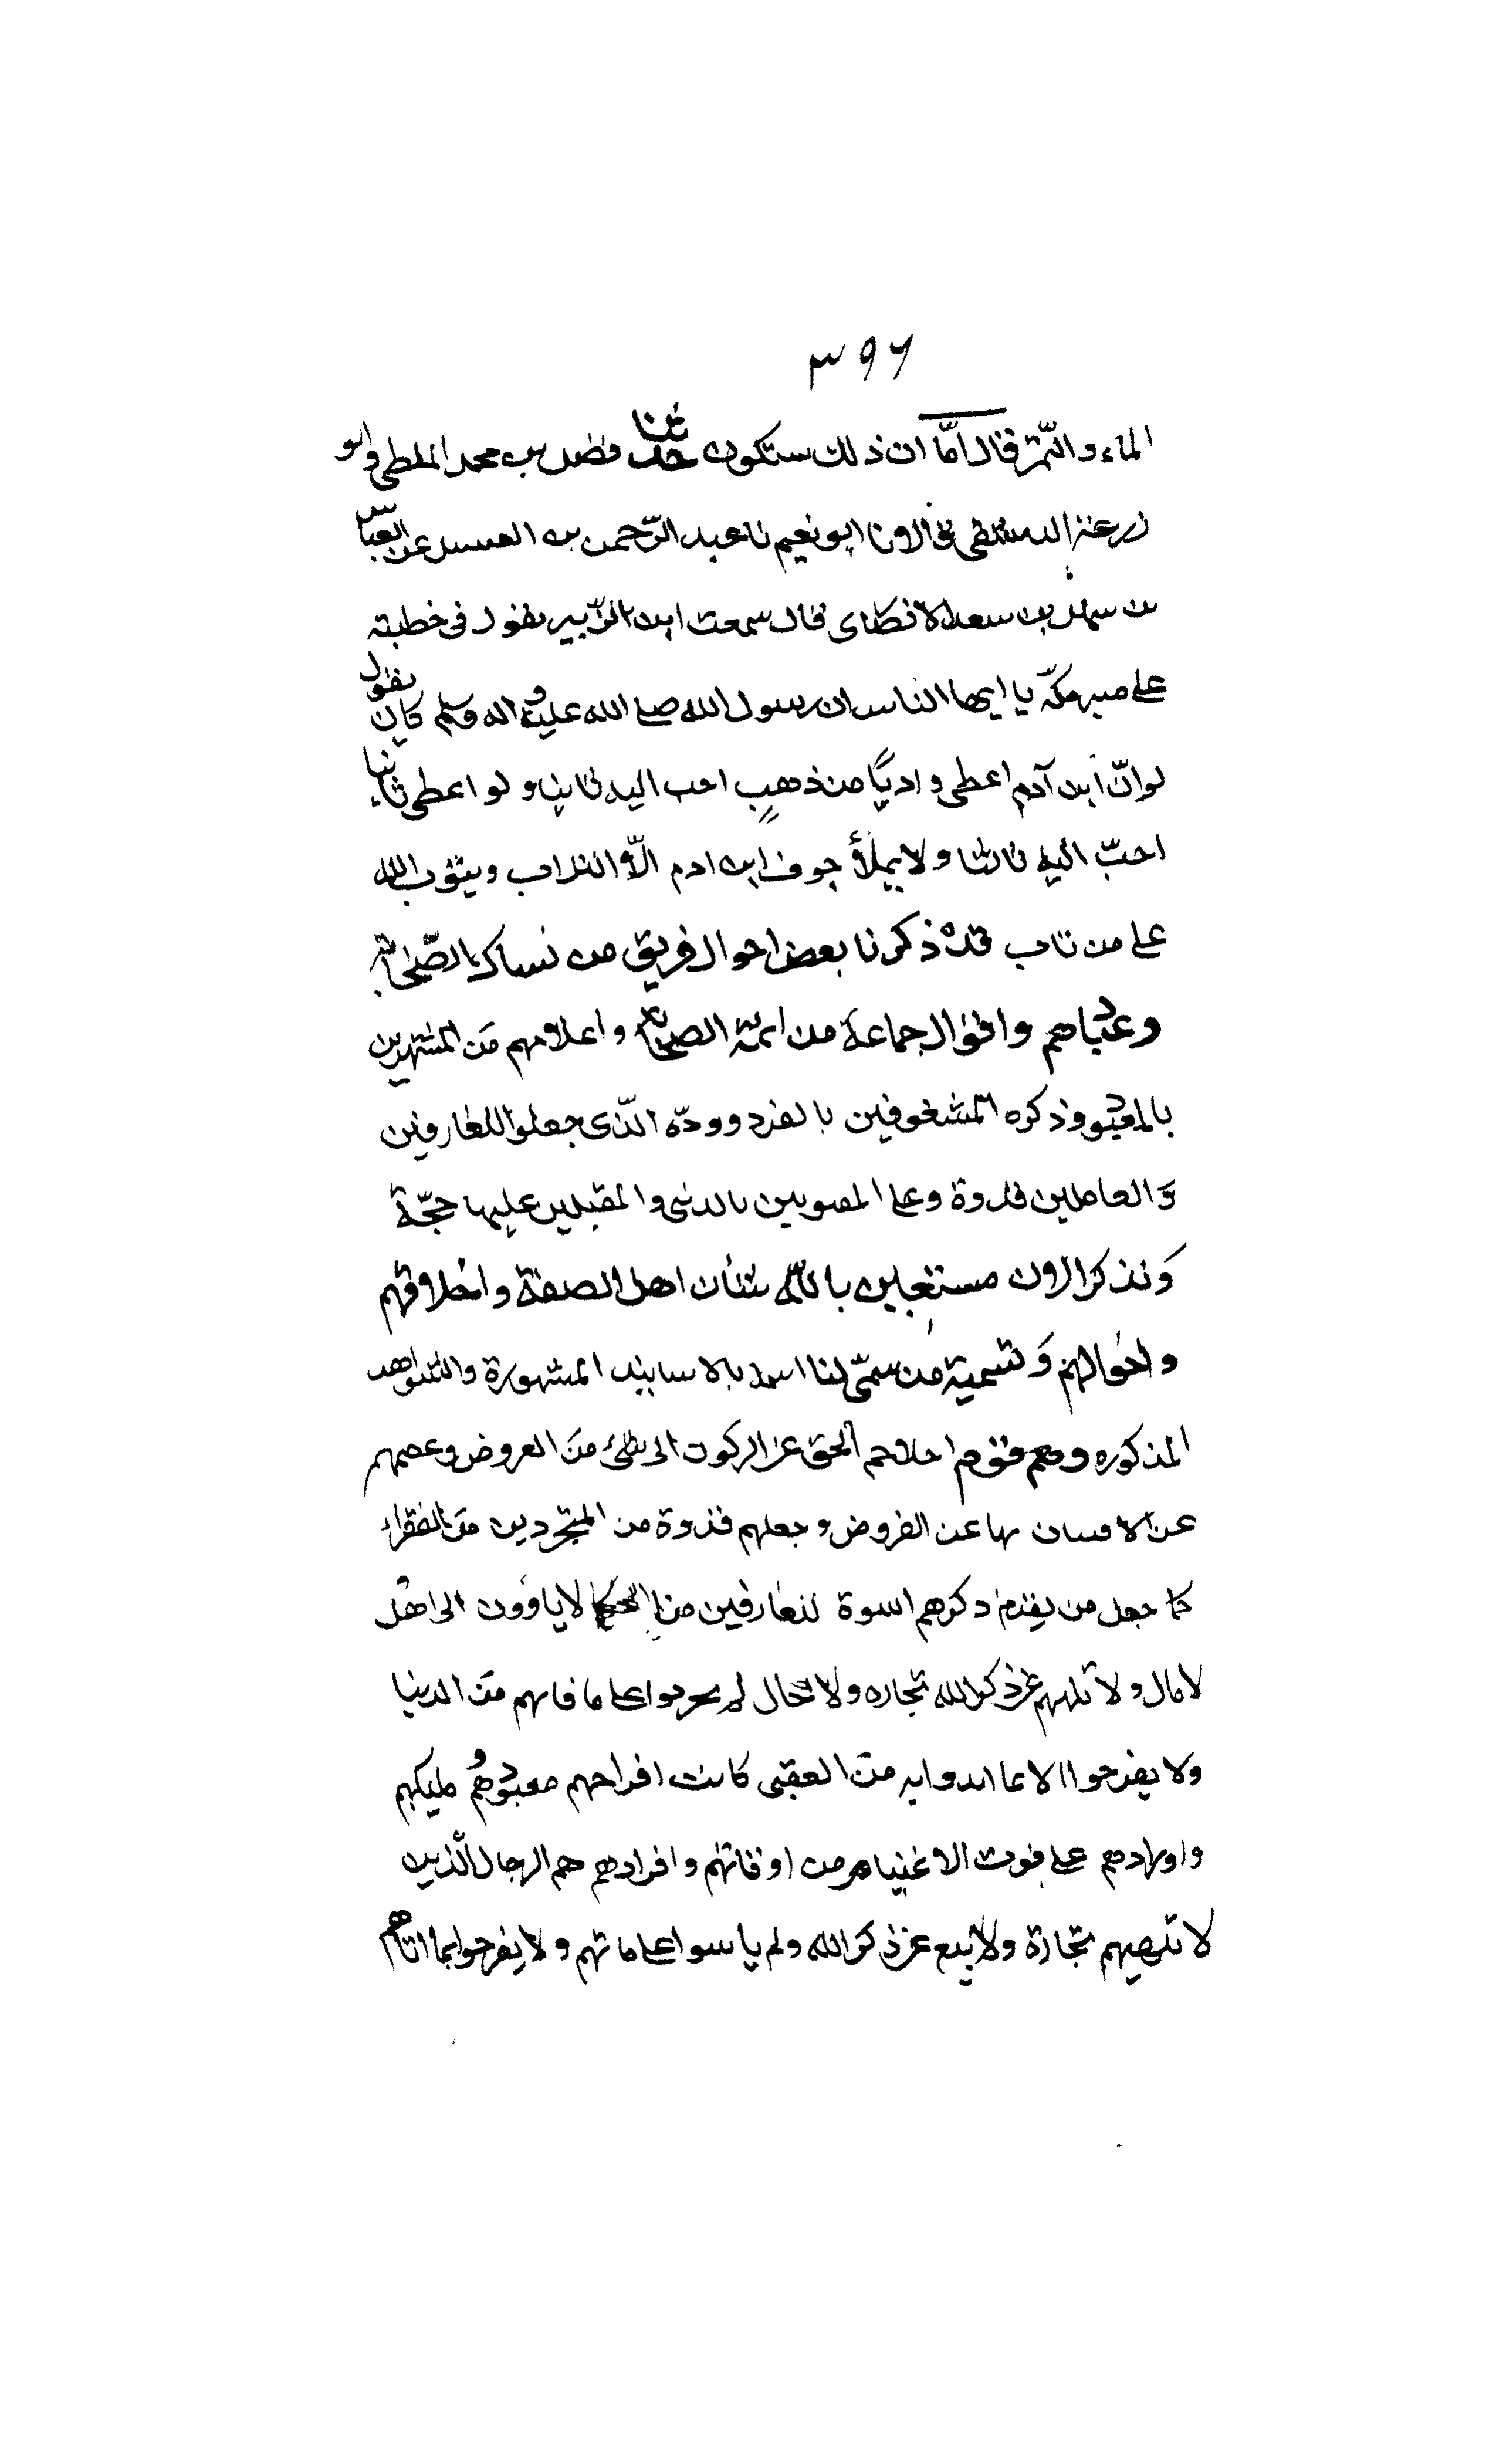 ٣٩٦
الماء والتّمر فقال امّا ان ذلك ستكون حدثنا فضل بن محمد الملطى وابو
زرعة الدمشقى قالا نا ابو نعيم نا عبد الرّحمن بن الغسيل عن العبّاس
بن سهل بن سعد الانصارى قال سمعت ابن الزّبير يقول فى خطبته
على منبر مكّة يا ايها الناس ان رسول الله صلى الله عليه و اله وسلم كان يقول
لو انّ ابن آدم اعطى واديًا من ذهبٍ احب اليه ثانيا ولو اعطى ثانيا
احبّ اليه ثالثا ولا يملأ جوف ابن ادم الّا التراب ويتوب الله
على من تاب قد ذكرنا بعض احوال فريق من نساك الصّحابة
وعبّادهم واقوال جماعة من ائمّة الصحابة واعلامهم مَن المشتهرين
بالمعبود وذكره المشغوفين بالفرد وودّه الّذى جعلوا للعارفين
وَالعاملين قدوة وعلى بالدنيى والمقبلين عليها حجّة
وَنذكر الان مستعينين باللّه شأن اهل الصفة واخلاقهم
واحوالهم وَتسمية من سمّى لنا اسمه بالاسانيد المشهورة والشواهد
المذكوره وهم قوم اخلاهم الحق عن الركون الى شئ مَن العروض وعصمهم
عن الافتتان بها عن الفروض وجعلهم قدوة من المتجردين مَن الفقراء
كما جعل من يقدم ذكرهم اسوة للعارفين من الحكما لا ياوون الى اهل و
لا مال ولا تلهيهم عن ذكر الله تجاره ولا حال لم يحزنوا على ما فاتهم مَن الدنيا
ولا يفرحوا الا بما ايدوا به مَن العقبى كانت افراحهم معبودهُم و مليكهم
على فوت الاغنيا من اوقاتهم وافرادهم هم الرجال الّذين
لا تلهيهم تجارة ولا بيع عن ذكر الله ولم ياسوا على ما فاتهم ولا يفرحوا بما اتاهم